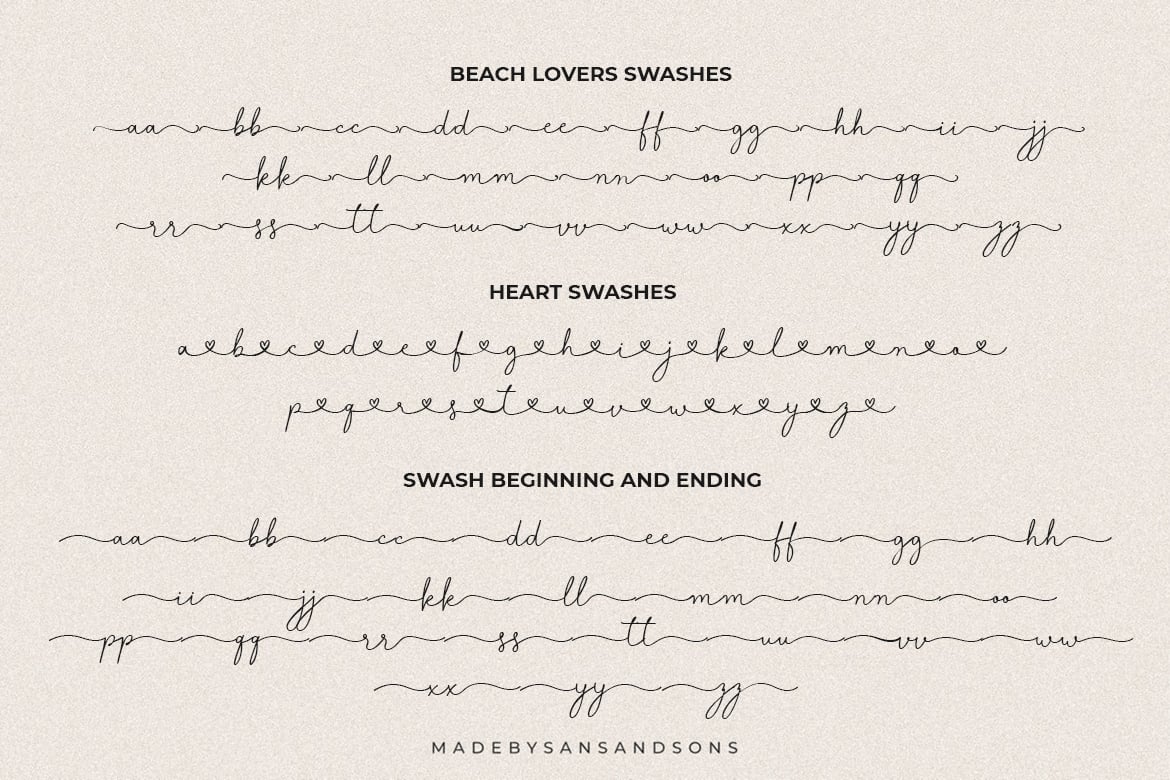 BEACH LOVERS SWASHES
aa bb cc dd ee ff gg hh ii jj
kk ll mm nn oo pp qq
rr ss tt uu vv ww xx yy zz
HEART SWASHES
a b c d e f g h i j k l m n o
p q r s t u v w x y z
SWASH BEGINNING AND ENDING
aa bb cc dd ee ff gg hh
ii jj kk ll mm nn oo
pp qq rr ss tt uu vv ww
xx yy zz
MADEBYSANSANDSONS